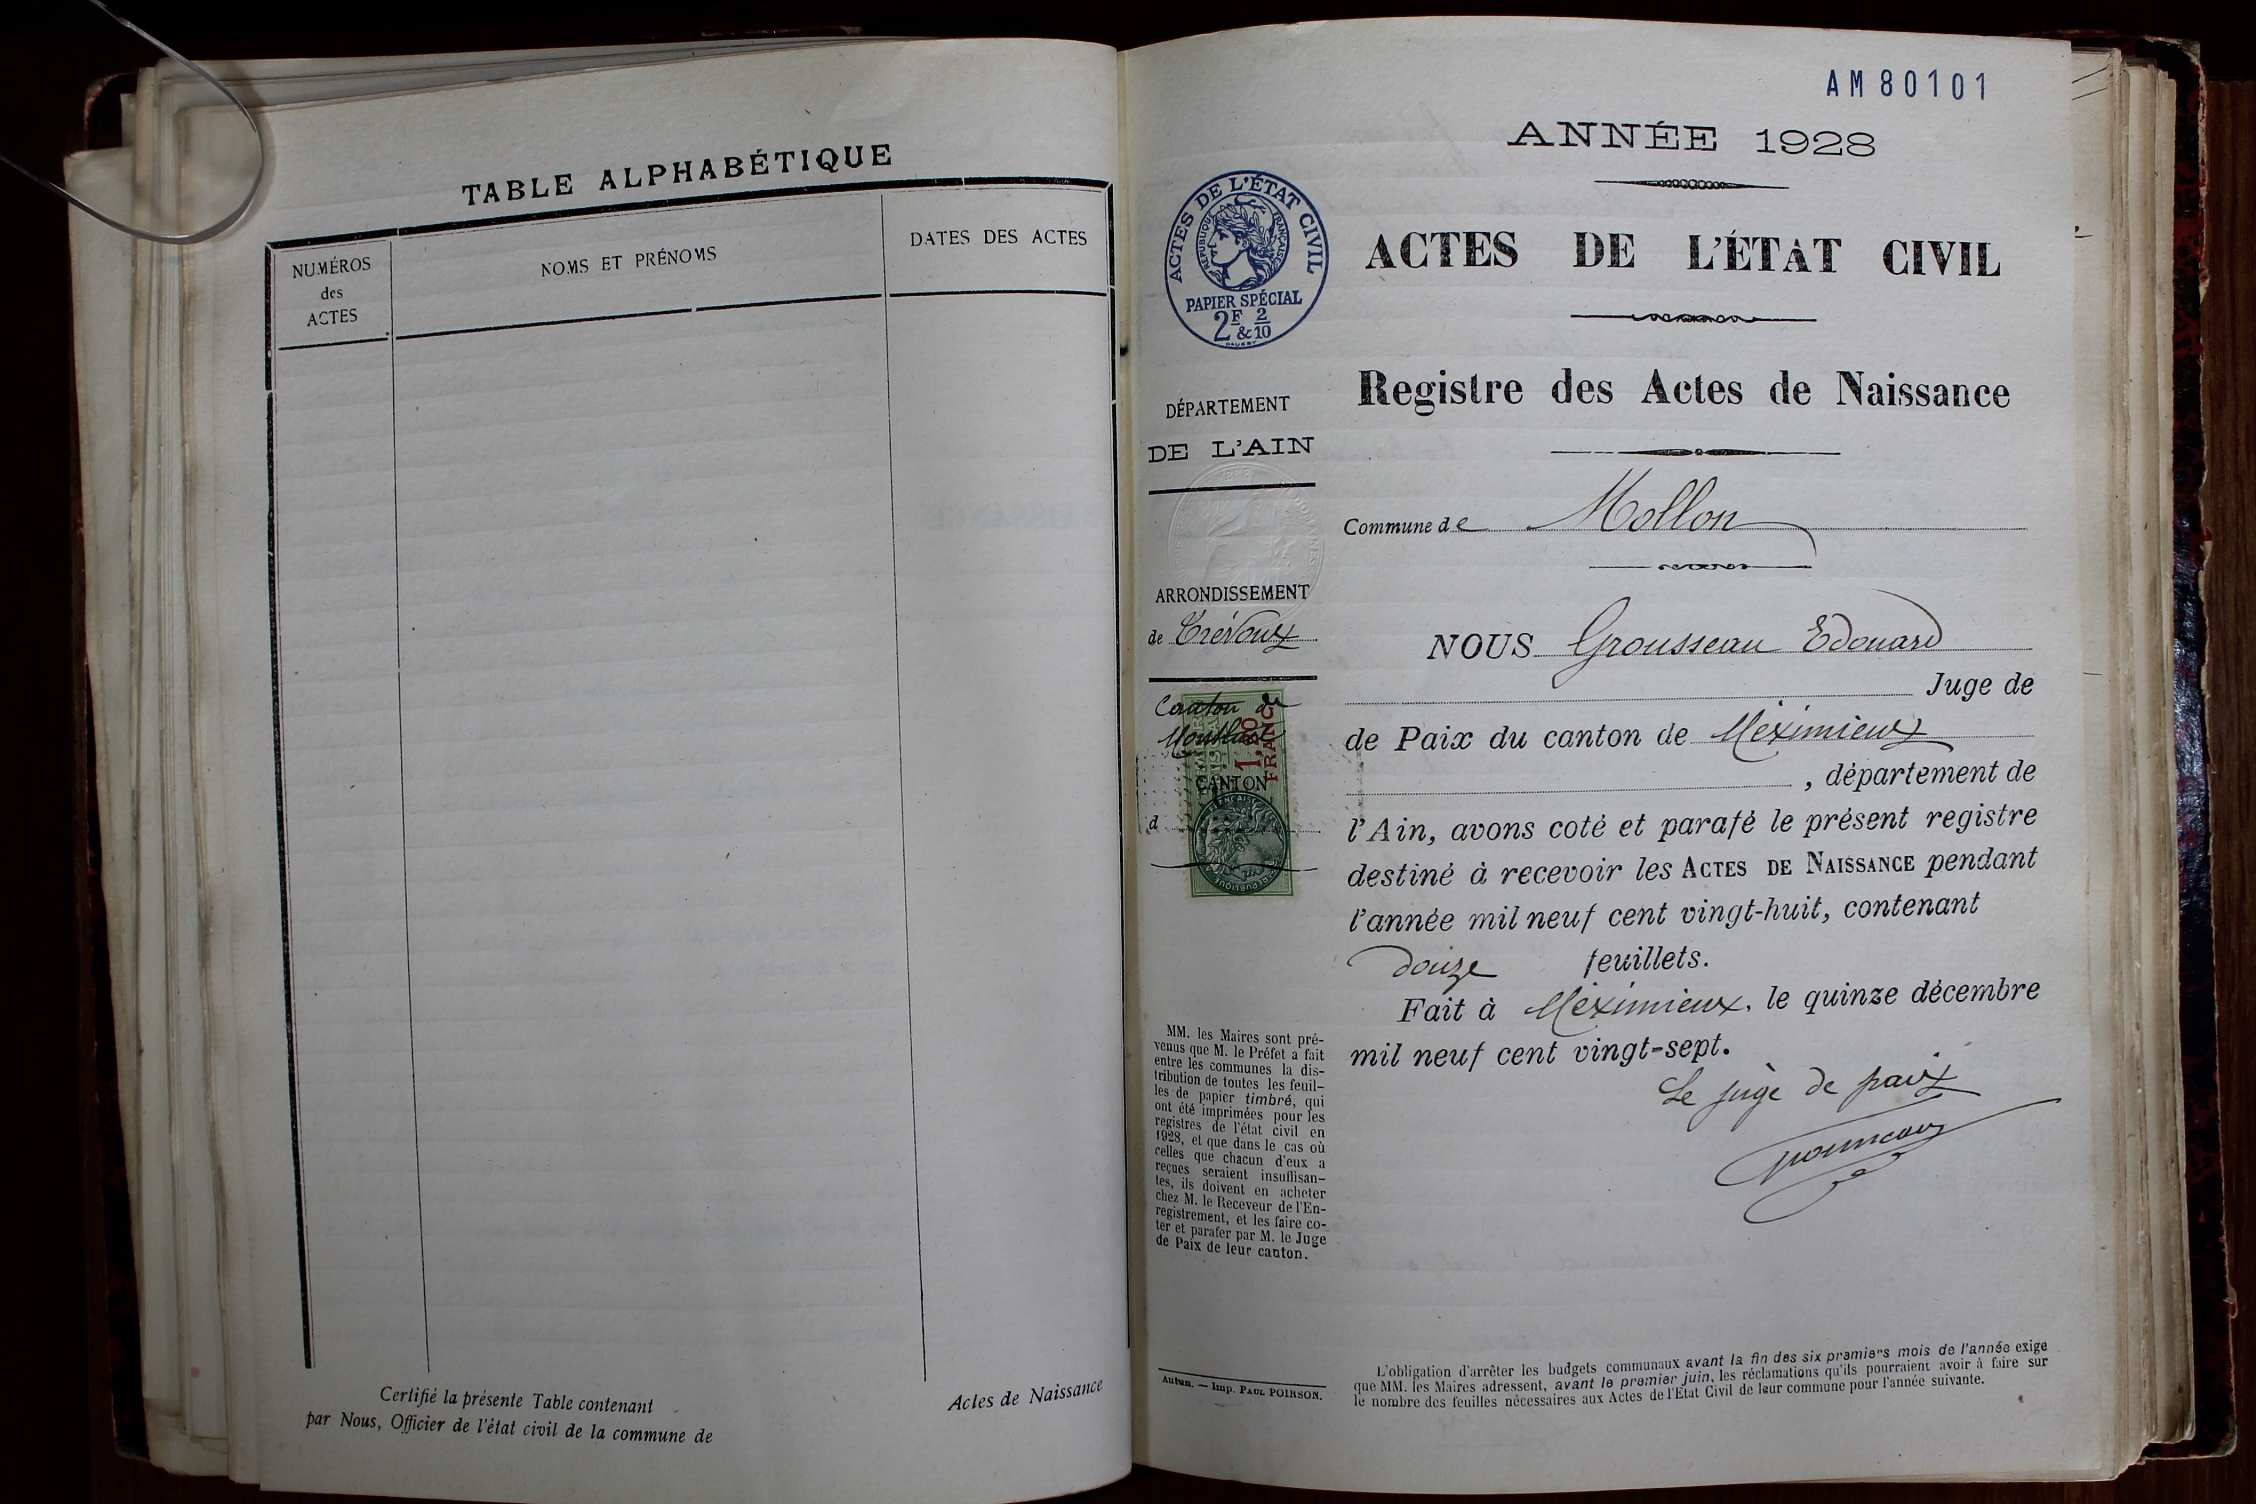 TABLE ALPHABÉTIQUE
NUMÉROS
des
ACTES
NOMS ET PRÉNOMS
DATES DES ACTES
Certifié la présente Table contenant
par Nous, Officier de l'état civil de la commune de
Actes de Naissance
AM80101
ANNÉE 1928
ACTES DE L'ÉTAT CIVIL
RÉPUBLIQUE FRANÇAISE
PAPIER SPÉCIAL
2F & 2/10
ACTES DE L'ÉTAT CIVIL
Registre des Actes de Naissance
DÉPARTEMENT
DE L'AIN
Commune de Mollon
ARRONDISSEMENT
de Trévoux
Canton de
1,80
FRANC
CANTON
d
NOUS Grousseau Edouard
Juge de
de Paix du canton de Méximieux
, département de
l'Ain, avons coté et parafé le présent registre
destiné à recevoir les ACTES DE NAISSANCE pendant
l'année mil neuf cent vingt-huit, contenant
douze feuillets.
Fait à Méximieux, le quinze décembre
mil neuf cent vingt-sept.
Le juge de paix
MM. les Maires sont pré-
venus que M. le Préfet a fait
entre les communes la dis-
tribution de toutes les feuil-
les de papier timbré, qui
ont été imprimées pour les
registres de l'état civil en
1928, et que dans le cas où
celles que chacun d'eux a
reçues seraient insuffisan-
tes, ils doivent en acheter
chez M. le Receveur de l'En-
registrement, et les faire co-
ter et parafer par M. le Juge
de Paix de leur canton.
Autun. — Imp. PAUL POIRSON.
L'obligation d'arrêter les budgets communaux avant la fin des six premiers mois de l'année exige
que MM. les Maires adressent, avant le premier juin, les réclamations qu'ils pourraient avoir à faire sur
le nombre des feuilles nécessaires aux Actes de l'Etat Civil de leur commune pour l'année suivante.